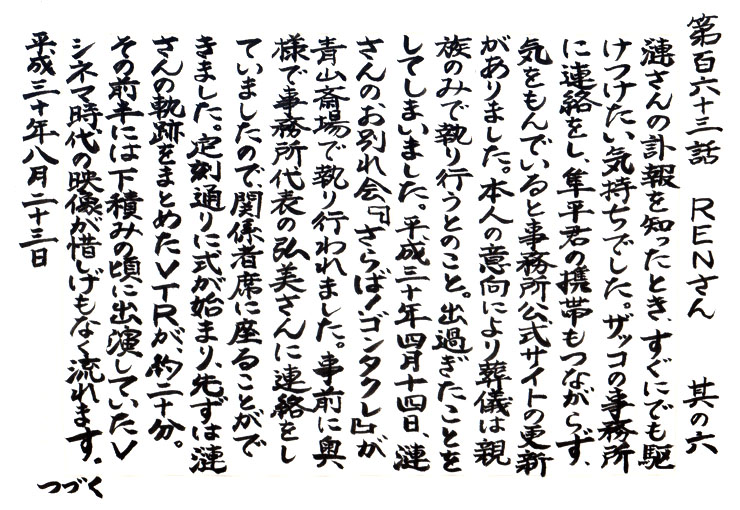 第百六十三話　RENさん　其の六
漣さんの訃報を知ったとき、すぐにでも駆
けつけたい気持ちでした。ザッコの事務所
に連絡をし、隼平君の携帯もつながらず、
気をもんでいると事務所公式サイトの更新
がありました。本人の意向により葬儀は親
族のみで執り行うとのこと。出過ぎたことを
してしまいました。平成三十年四月十四日、漣
さんのお別れ会『さらば！ゴンタクレ』が
青山斎場で執り行われました。事前に奥
様で事務所代表の弘美さんに連絡をし
ていましたので、関係者席に座ることがで
きました。定刻通りに式が始まり、先ずは漣
さんの軌跡をまとめたVTRが約二十分。
その前半には下積みの頃に出演していたV
シネマ時代の映像が惜しげもなく流れます。
平成三十年八月二十三日
つづく